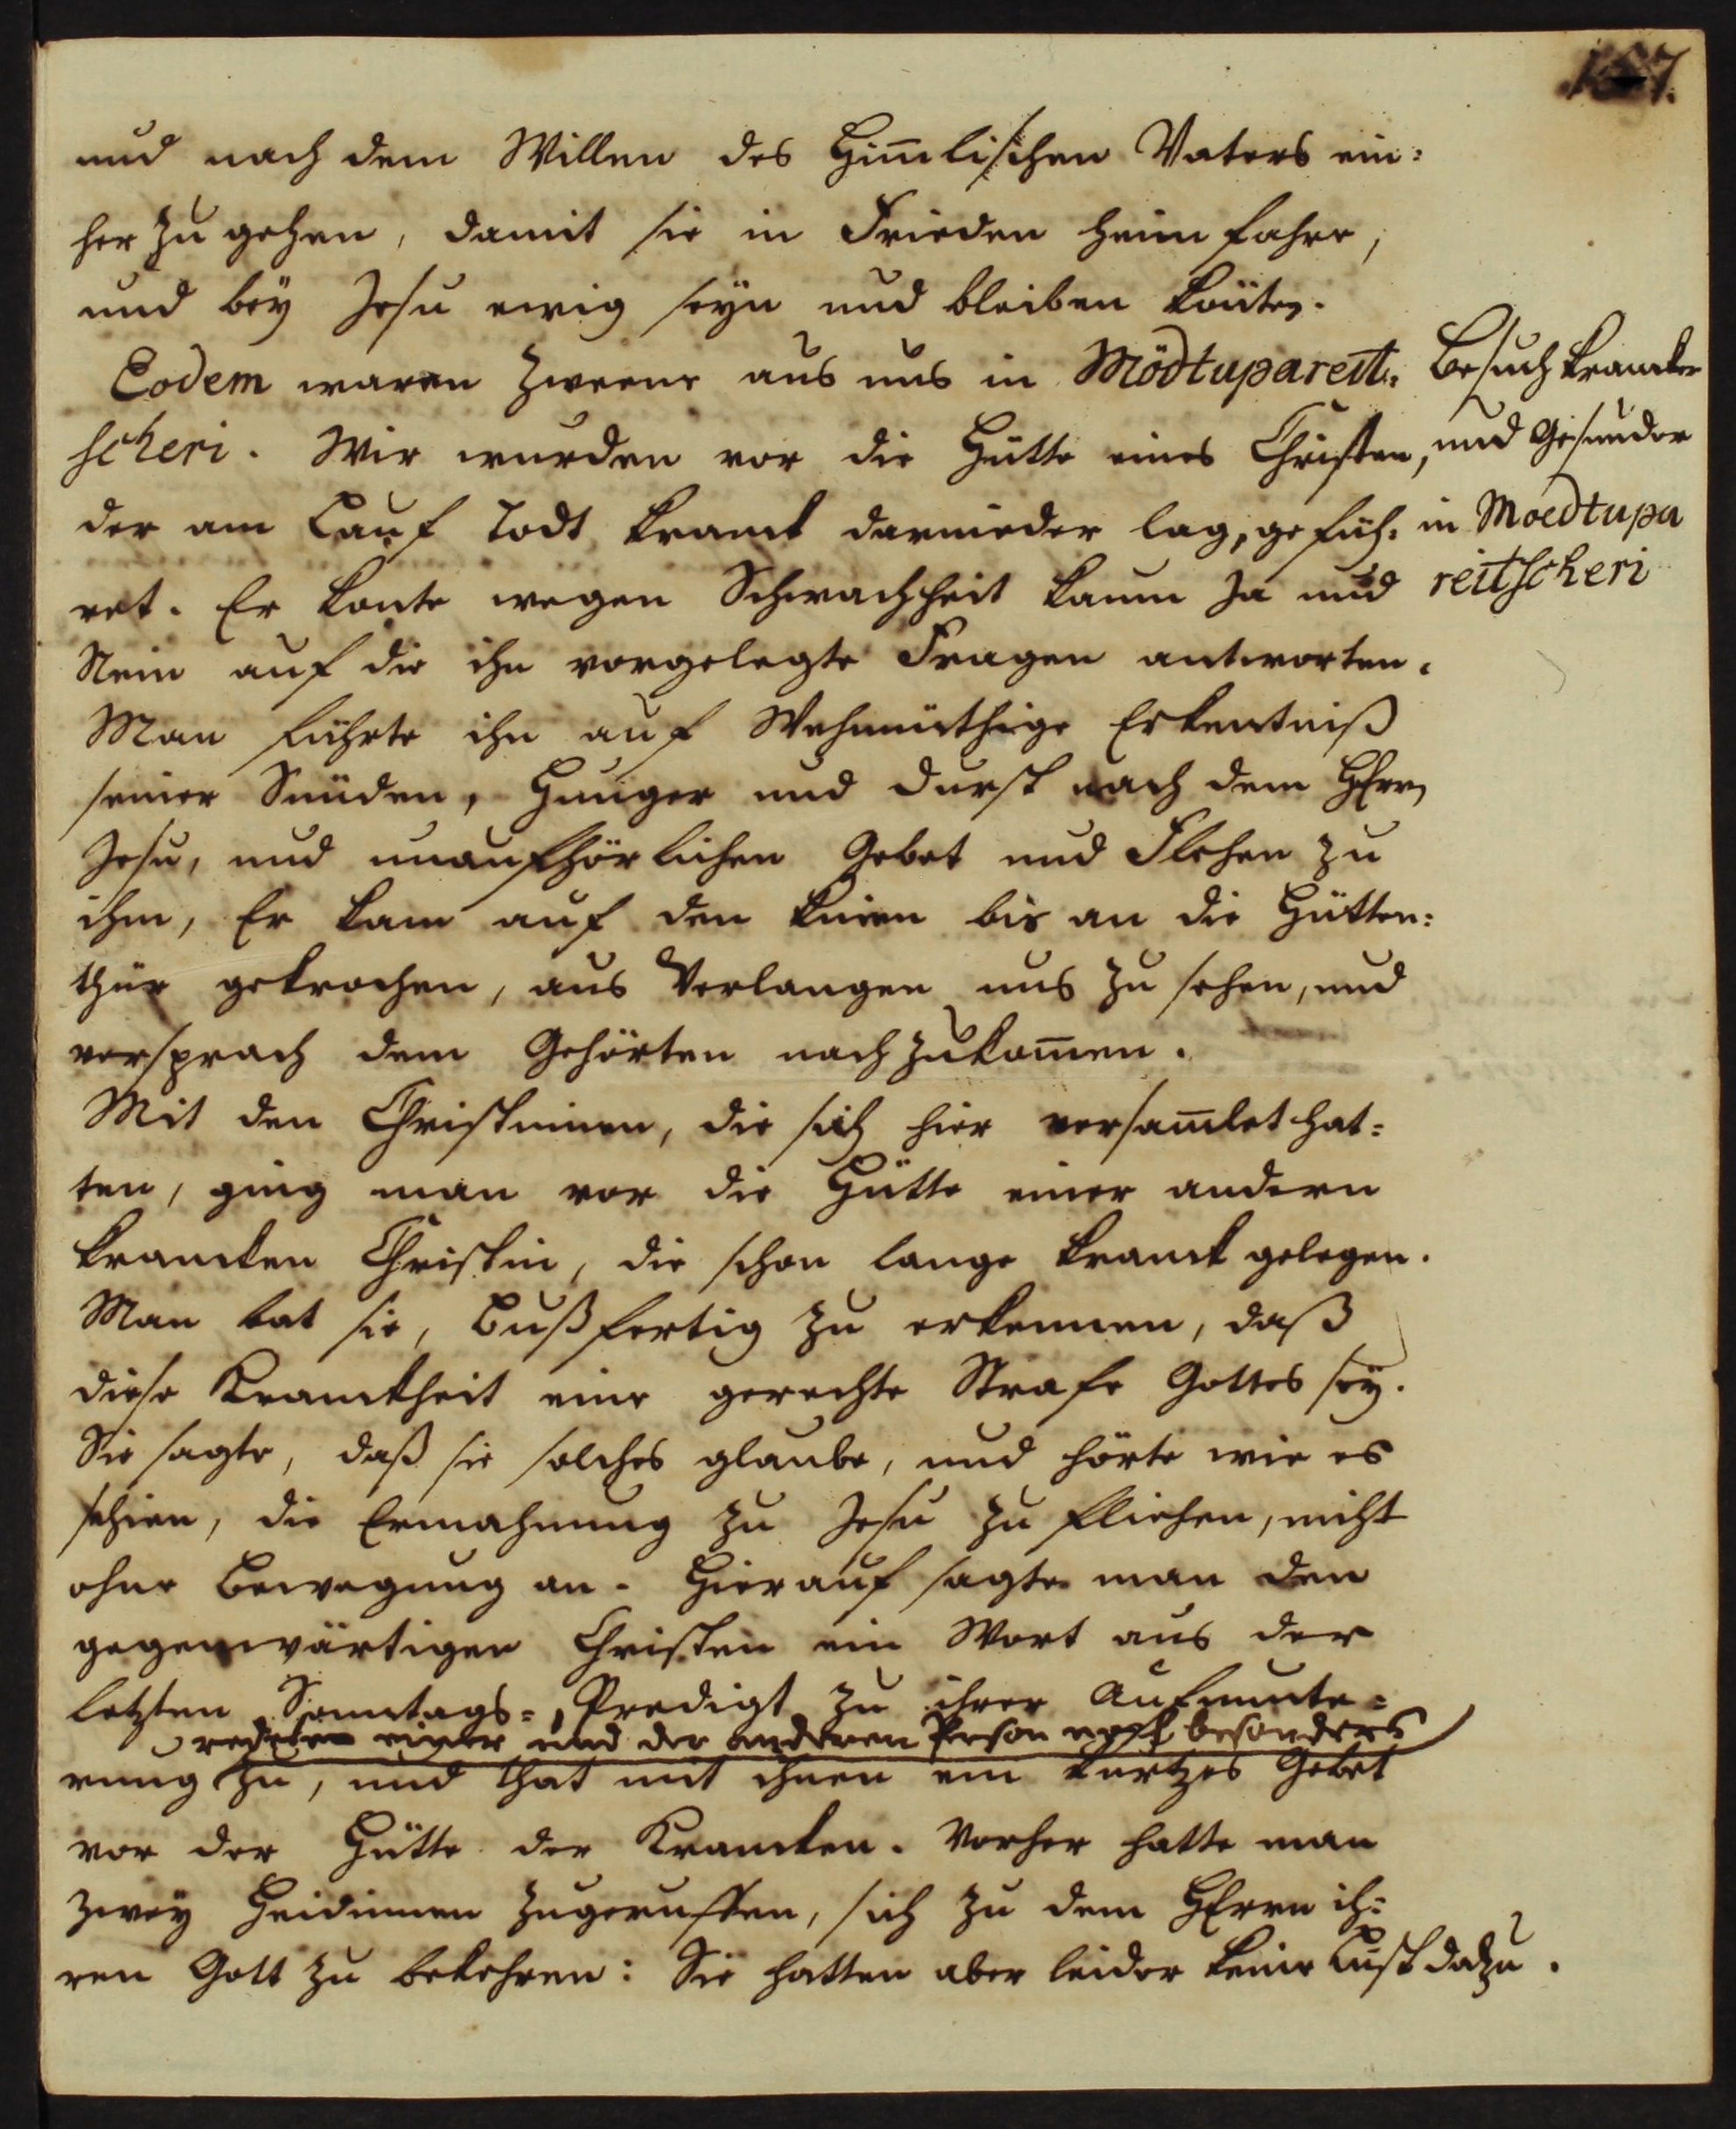 167.
und nach dem Willen des Him̄lischen Vaters ein-
her zu gehen, damit sie in Frieden heim fahre,
und bey Jesu ewig seyn und bleiben kön̄te.
Eodem waren Zweene aus uns in Mödtupareit-
scheri. Wir wurden vor die Hütte eines Christen,
der am Lauf todt kranck darnieder lag, gefüh-
ret. Er konte wegen Schwachheit kaum Ja und
Nein auf die ihn vorgelegte Fragen antworten.
Man führte ihn auf Wehmüthige Erkentniß
seiner Sünden, Hunger und Durst nach dem HErrn
Jesu, und unaufhörlichen Gebet und Flehen zu
ihm, Er kam auf den Knien bis an die Hütten-
thür gekrochen, aus Verlangen uns zu sehen, und
versprach dem Gehörten nachzukom̄en.
Mit den Christinnen, die sich hier versam̄let hat-
ten, ging man vor die Hütte einer andern
krancken Christin, die schon lange kranck gelegen.
Man bat sie, bußfertig zu erkennen, daß
diese Kranckheit eine gerechte Strafe Gottes sey.
Sie sagte, daß sie solches glaube, und hörte wie es
schien, die Ermahnung zu Jesu zu fliehen, nicht
ohne Bewegung an. Hierauf sagte man den
gegenwärtigen Christen ein Wort aus der
letzten Sonntags-Predigt zu ihrer Aufmunte-
redeten einer und der anderen Person noch besonders
rung zu, und that mit ihnen ein kurtzes Gebet
vor der Hütte der Krancken. Vorher hatte man
zwey Heidinnen zugeruffen, sich zu dem HErrn ih-
ren Gott zu bekehren: Sie hatten aber leider keine Lust dazu.
Besuch krancker
und Gesunder
in Moedtupa
reitscheri